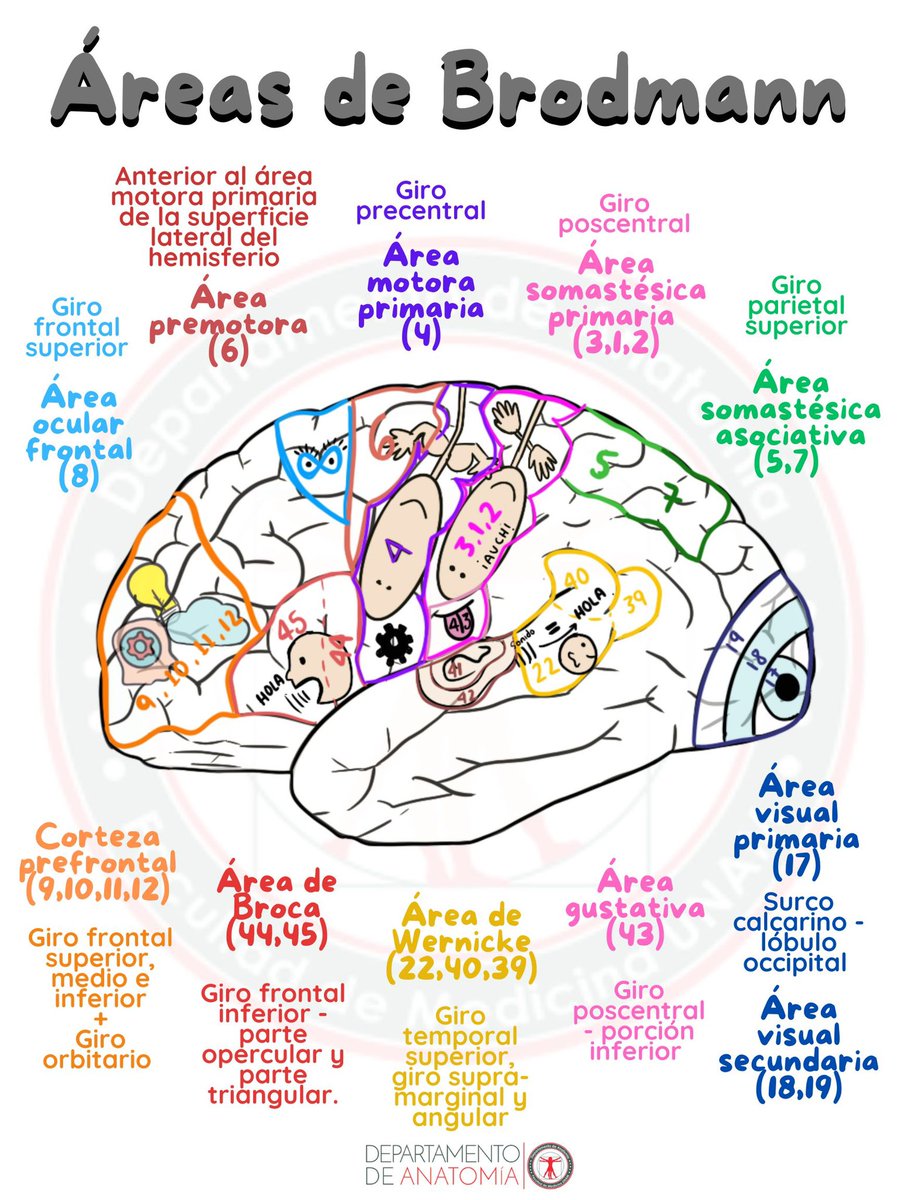 Áreas de Brodmann
Anterior al área
motora primaria
de la superficie
lateral del
hemisferio
Área
premotora
(6)
Giro
precentral
Área
motora
primaria
(4)
Giro
poscentral
Área
somastésica
primaria
(3,1,2)
Giro
parietal
superior
Área
somastésica
asociativa
(5,7)
Giro
frontal
superior
Área
ocular
frontal
(8)
6
4
3,1,2
¡AUCH!
5
7
9,10,11,12
45
44
HOLA
43
41
42
Sonido
=
HOLA
40
39
22
19
18
17
Corteza
prefrontal
(9,10,11,12)
Giro frontal
superior,
medio e
inferior
+
Giro
orbitario
Área de
Broca
(44,45)
Giro frontal
inferior -
parte
opercular y
parte
triangular.
Área de
Wernicke
(22,40,39)
Giro
temporal
superior,
giro supra-
marginal y
angular
Área
gustativa
(43)
Giro
poscentral
- porción
inferior
Área
visual
primaria
(17)
Surco
calcarino -
lóbulo
occipital
Área
visual
secundaria
(18,19)
DEPARTAMENTO
DE ANATOMÍA